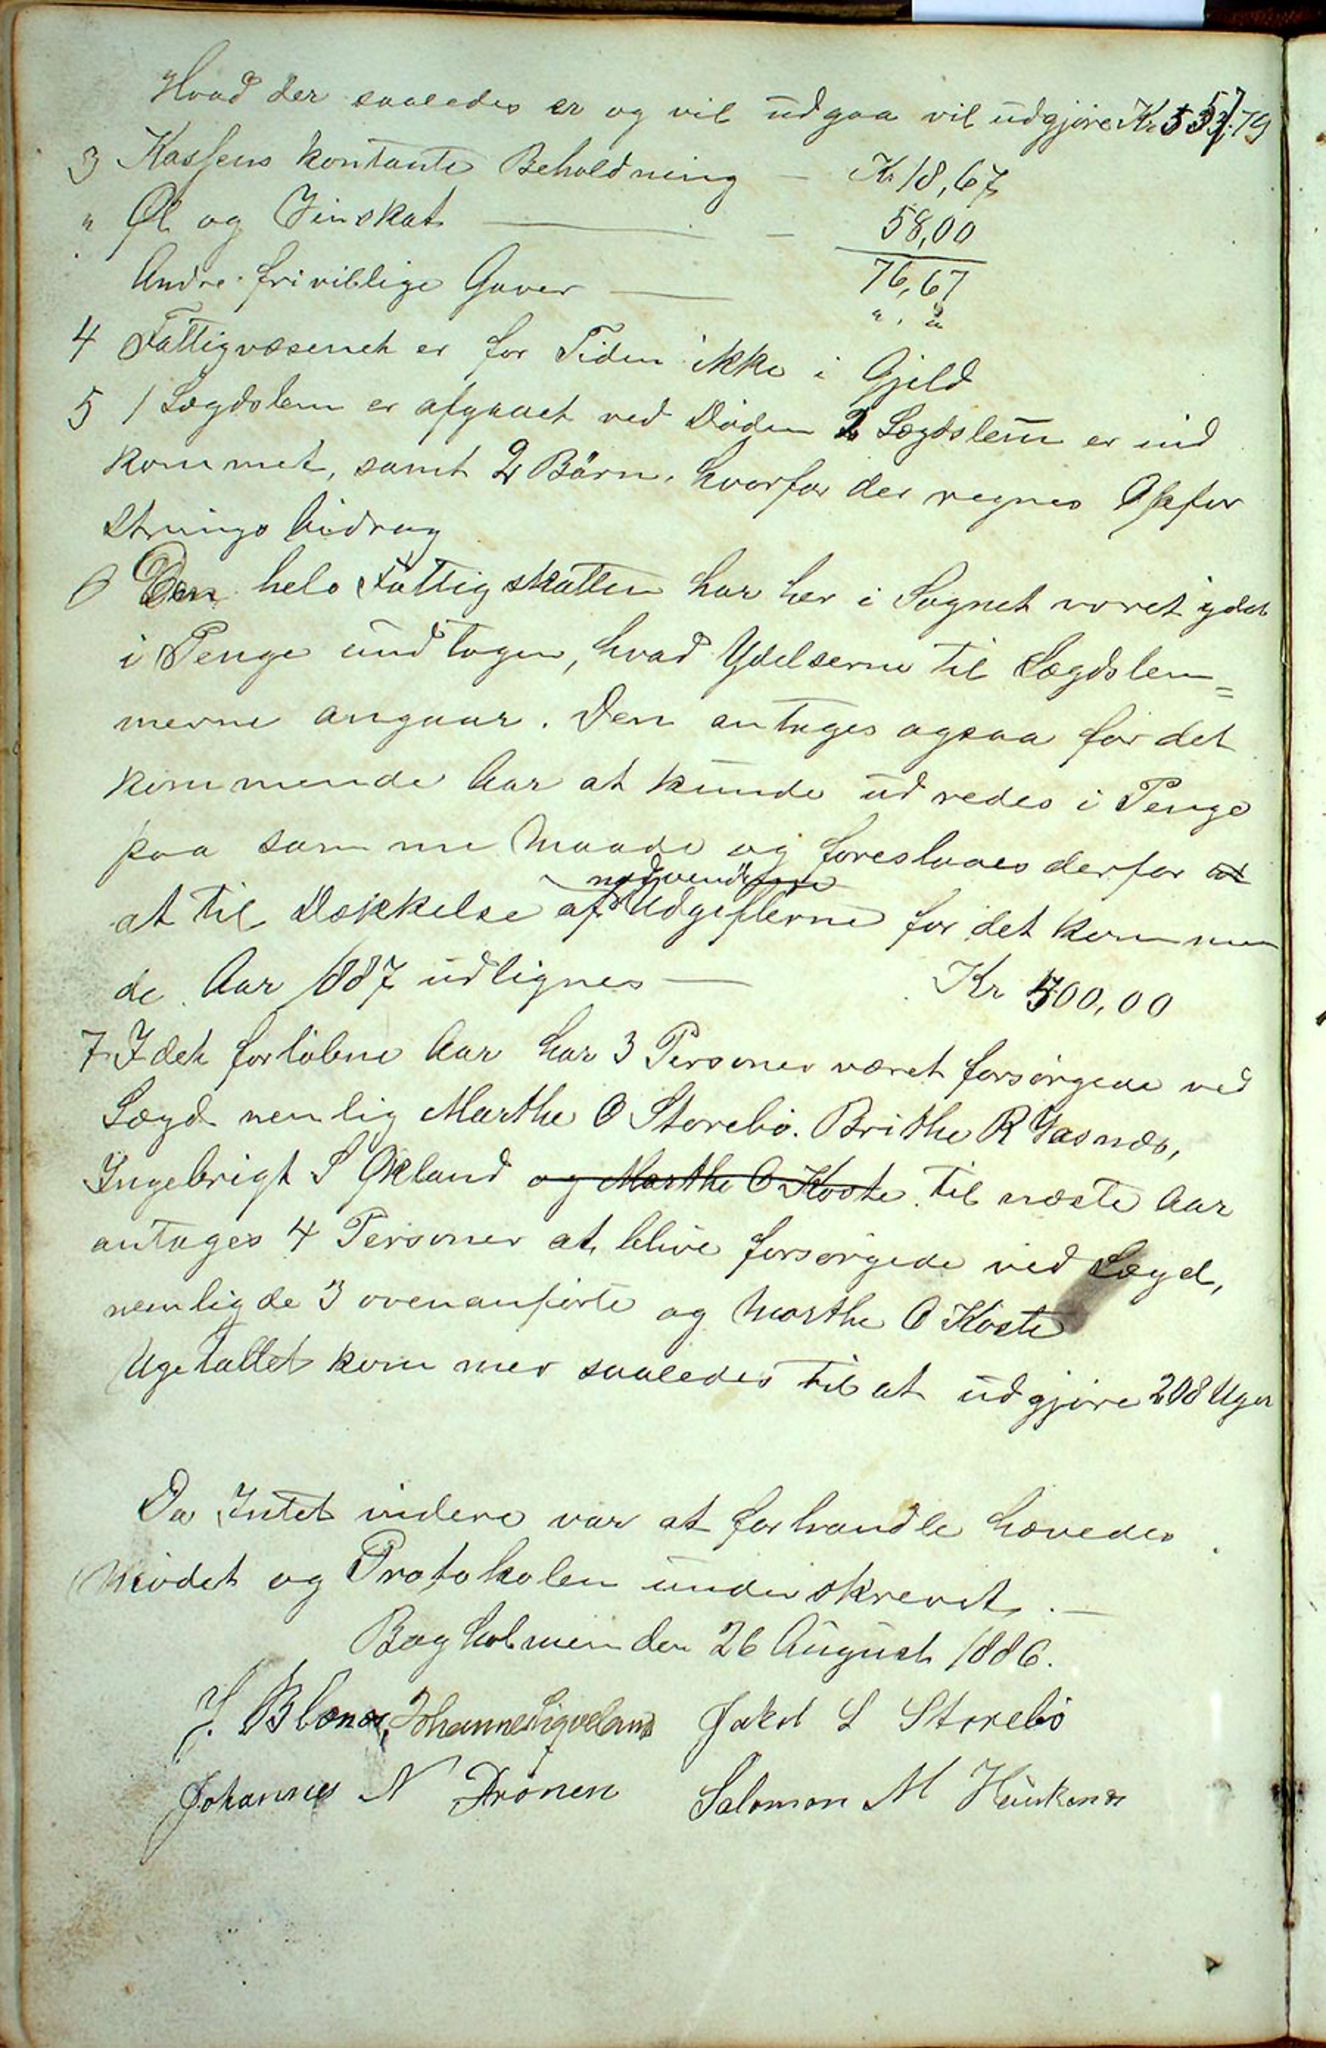 Hvad der saaledes er og vil udgaa vil udgjøre Kr 557,79
3 Kassens kontante Beholdning — Kr 18,67
" Øl og Vinskat — 58,00
76,67
Andre frivillige Gaver — " , "
4 Fattigvæsenet er for Tiden ikke i Gjeld
5 1 Lægdslem er afgaaet ved Døden 2 Lægdslem er ind
kommet, samt 2 Børn, hvorfor der regnes Opfor
strings bidrag
6 Den hele Fattigskatten har her i Sognet været ydet
i Penge undtagen, hvad Ydelserne til Lægdslem=
merne angaar. Den antages ogsaa for det
kommende Aar at kunde udredes i Penge
paa samme Maade og foreslaaes derfor at
at til Dækkelse af nødvendige Udgifterne for det kommen
de Aar 1887 udlignes — Kr 500,00
7 I det forløbne Aar har 3 Personer været forsørgede ved
Lægd nemlig Marthe O Storebø. Brithe R Vasnæs,
Ingebrigt S Økland og Marthe O Koste til næste Aar
antages 4 Personer at blive forsørgede ved Lægd,
nemlig de 3 ovenanførte og Marthe O Koste
Ugetallet kommer saaledes til at udgjøre 208 Uger
Da Intet videre var at forhandle hævedes
Mødet og Protokolen underskrevet. —
Bagholmen den 26 August 1886.
J. Blænæs, Johannes Ligveland Jakob L Storebø
Johannes N Drønen Salomon M Heukenæs